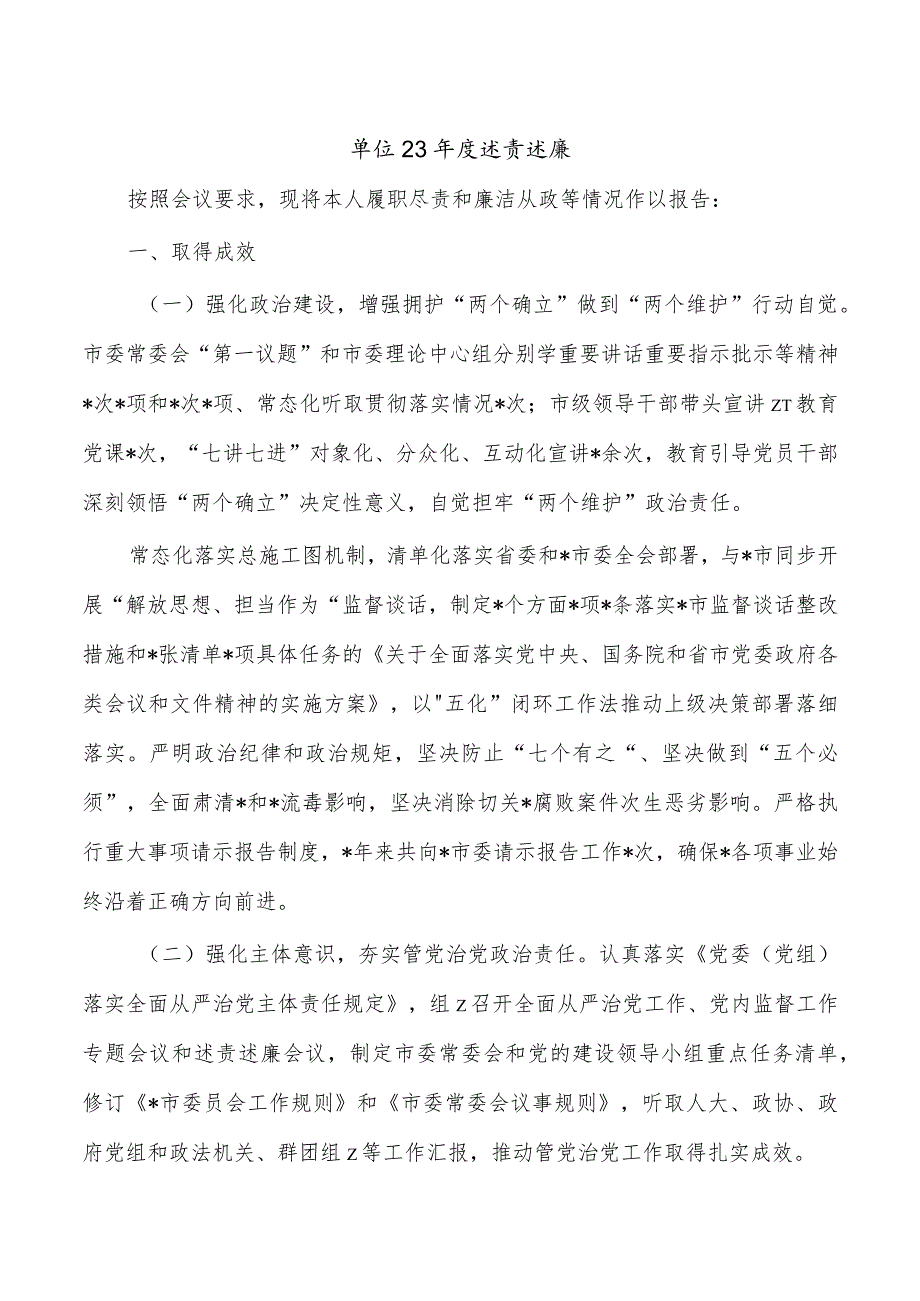 单位 23 年度述责述廉
按照会议要求，现将本人履职尽责和廉洁从政等情况作以报告：
一、取得成效
（一）强化政治建设，增强拥护“两个确立”做到“两个维护”行动自觉。
市委常委会“第一议题”和市委理论中心组分别学重要讲话重要指示批示等精神
*次*项和*次*项、常态化听取贯彻落实情况*次；市级领导干部带头宣讲 ZT 教育
党课*次，“七讲七进”对象化、分众化、互动化宣讲*余次，教育引导党员干部
深刻领悟“两个确立”决定性意义，自觉担牢“两个维护”政治责任。
常态化落实总施工图机制，清单化落实省委和*市委全会部署，与*市同步开
展“解放思想、担当作为“监督谈话，制定*个方面*项*条落实*市监督谈话整改
措施和*张清单*项具体任务的《关于全面落实党中央、国务院和省市党委政府各
类会议和文件精神的实施方案》，以"五化”闭环工作法推动上级决策部署落细
落实。严明政治纪律和政治规矩，坚决防止“七个有之“、坚决做到“五个必
须”，全面肃清*和*流毒影响，坚决消除切关*腐败案件次生恶劣影响。严格执
行重大事项请示报告制度，*年来共向*市委请示报告工作*次，确保*各项事业始
终沿着正确方向前进。
（二）强化主体意识，夯实管党治党政治责任。认真落实《党委（党组）
落实全面从严治党主体责任规定》，组 Z 召开全面从严治党工作、党内监督工作
专题会议和述责述廉会议，制定市委常委会和党的建设领导小组重点任务清单，
修订《*市委员会工作规则》和《市委常委会议事规则》，听取人大、政协、政
府党组和政法机关、群团组 Z 等工作汇报，推动管党治党工作取得扎实成效。